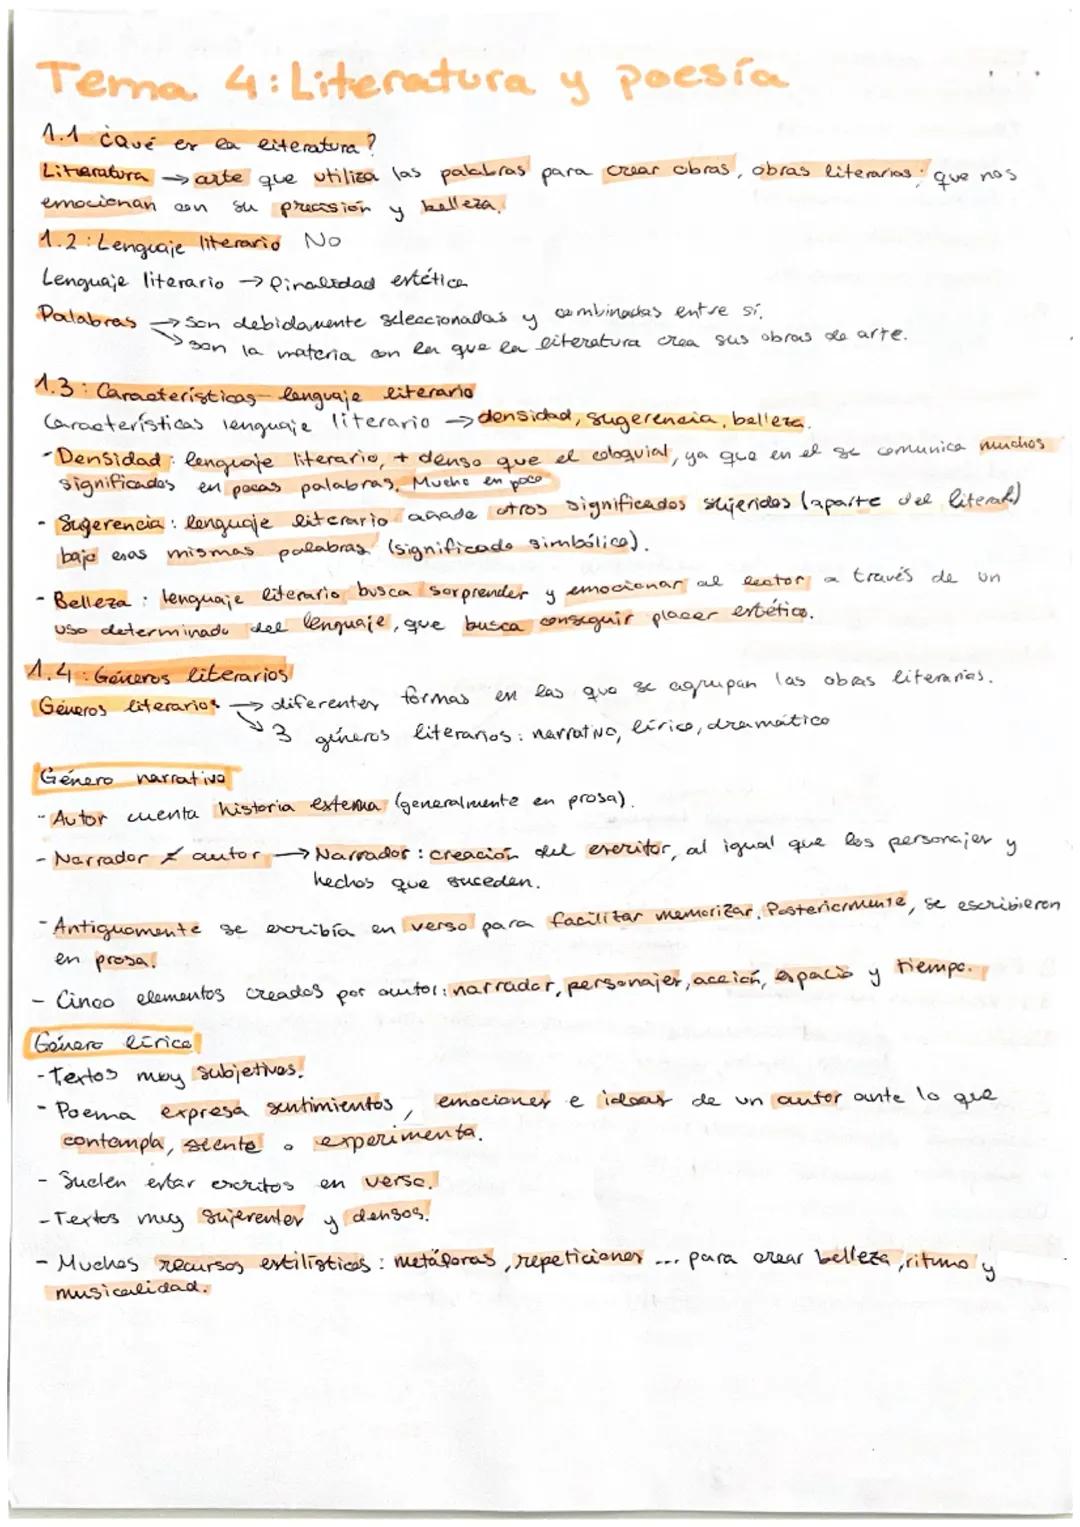 Tema 4: Literatura y poesía
1.1 ¿Qué es la literatura?
Literatura → arte que utiliza las palabras para crear obras, obras literarias; que nos
emocionan con su precisión y belleza.
1.2: Lenguaje literario No
Lenguaje literario → finalidad estética
Palabras → son debidamente seleccionadas y combinadas entre sí.
↘ son la materia con la que la literatura crea sus obras de arte.
1.3: Características lenguaje literario
Características lenguaje literario → densidad, sugerencia, belleza.
- Densidad: lenguaje literario, + denso que el coloquial, ya que en el se comunica muchos
significados en pocas palabras. Mucho en poco
- Sugerencia: lenguaje literario añade otros significados sujeridos (aparte del literal)
bajo esas mismas palabras (significado simbólico).
- Belleza: lenguaje literario busca sorprender y emocionar al lector a través de un
uso determinado del lenguaje, que busca conseguir placer estético.
1.4: Géneros literarios
Géneros literarios → diferentes formas en las que se agrupan las obras literarias.
↘ 3 géneros literarios: narrativo, lírico, dramático
Género narrativo
- Autor cuenta historia externa (generalmente en prosa).
- Narrador ≠ autor → Narrador: creación del escritor, al igual que los personajes y
hechos que suceden.
- Antiguamente se escribía en verso para facilitar memorizar. Postericrmente, se escribieron
en prosa.
- Cinco elementos creados por autor: narrador, personajes, acción, espacio y tiempo.
Género lírico
- Textos muy subjetivos.
- Poema expresa sentimientos, emociones e ideas de un autor ante lo que
contempla, siente o experimenta.
- Suelen estar escritos en verso.
- Textos muy sujerentes y densos.
- Muchos recursos estilísticos: metáforas, repeticiones ... para crear belleza, ritmo y
musicalidad.